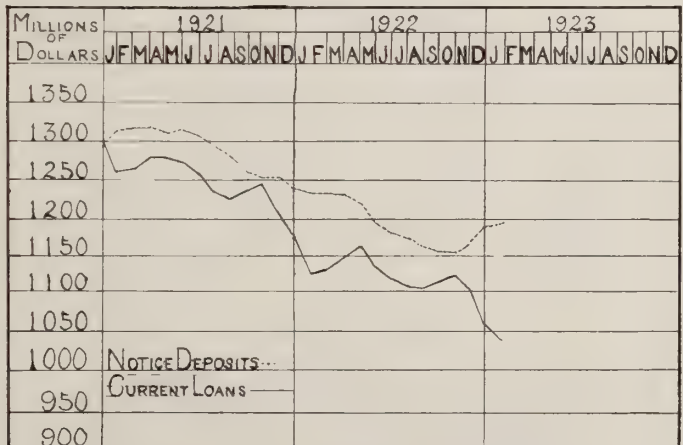 MILLIONS OF DOLLARS
1921 1922 1923
J F M A M J J A S O N D J F M A M J J A S O N D J F M A M J J A S O N D
1350
1300
1250
1200
1150
1100
1050
1000
950
900
NOTICE DEPOSITS
CURRENT LOANS